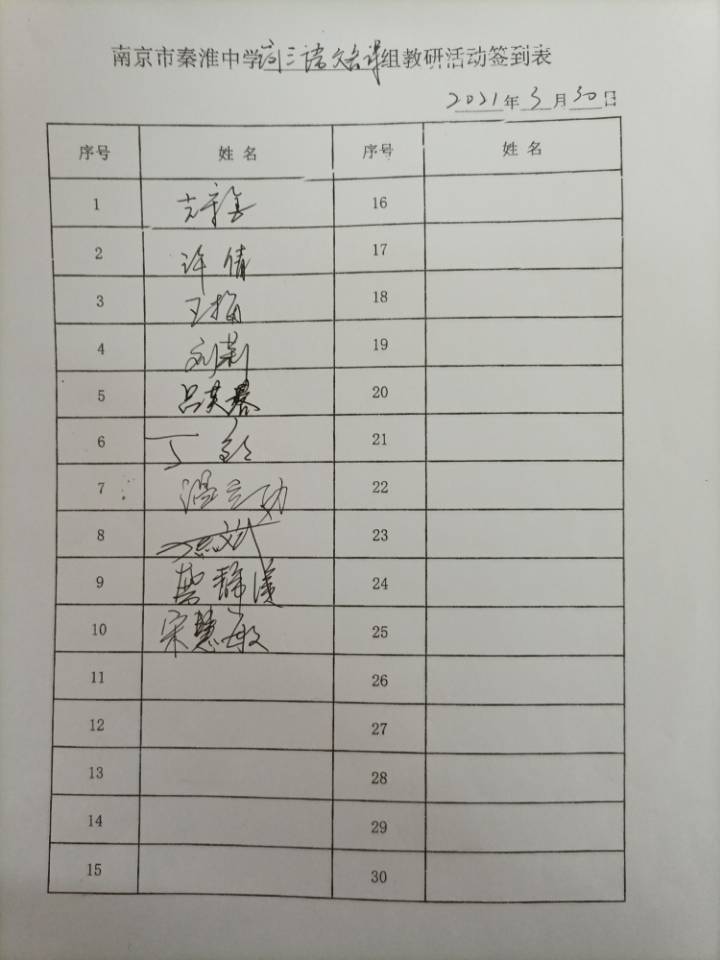 南京市秦淮中学高三语文备课组教研活动签到表
2021年3月30日
序号 姓名 序号 姓名
1 16
2 许倩 17
3 王梅 18
4 刘莉 19
5 吕芙蓉 20
6 丁 21
7 温立功 22
8 23
9 龚静漪 24
10 宋慧敏 25
11 26
12 27
13 28
14 29
15 30